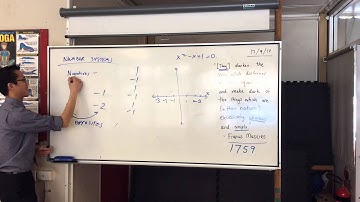 NUMBER SYSTEMS
x² - x + 1 = 0
17/9/18
Negatives -
- 1
- 2
OPPOSITES
-3 -2 -1
"[They] darken the
very whole doctrines
and make dark of
the things which are
in their nature
excessively obvious
and simple."
- Francis Maseres
1759